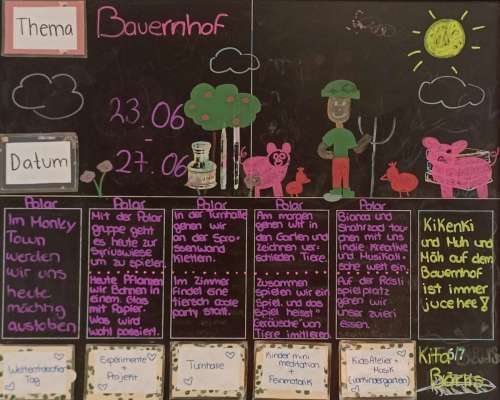 Thema
Bauernhof
23.06
-
27.06
Datum
Polar
Im Monky
Town
werden
wir uns
heute
mächtig
austoben
Polar
Mit der Polar
gruppe geht
es heute zur
Syriuswiese
um zu spielen.
Heute Pflanzen
wir Bohnen in
einem Glas
mit Papier.
Was wird
wohl passiert.
Polar
In der Turnhalle
gehen wir
an der Spro-
ssenwand
klettern.
Im Zimmer
findet eine
tierisch coole
party statt.
Polar
Am morgen
gehen wir in
den Garten und
zeichnen ver-
schieden Tiere.
Zusammen
spielen wir ein
Spiel und das
Spiel heisst
Geräusche von
Tiere imitieren
Polar
Bianca und
Shahrzad tau-
chen mit uns
in die Kreative
und Musikali-
sche welt ein.
Auf der Rösli
spielplatz
gehen wir
unser zvieri
essen.
Kikeriki
und Muh und
Mäh auf dem
Bauernhof
ist immer
juchee!
Weltentdecker
Tag
Experimente +
Projekt
Turnhalle
Kinder mini
meditation
+
Feinmotorik
Kids Atelier +
Musik
(vorkindergarten)
Kita